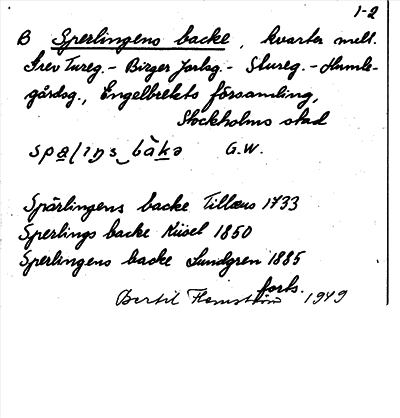 1-2
B Sperlingens backe, kvarter mell.
Grev Tureg.- Birger Jarlsg.- Stureg.- Humle-
gårdsg., Engelbrekts församling,
Stockholms stad
G.W.
Spärlingens backe Tillæus 1733
Sperlings backe Kiisel 1850
Sperlingens backe Lundgren 1885
forts.
Bertil Flemström 1949